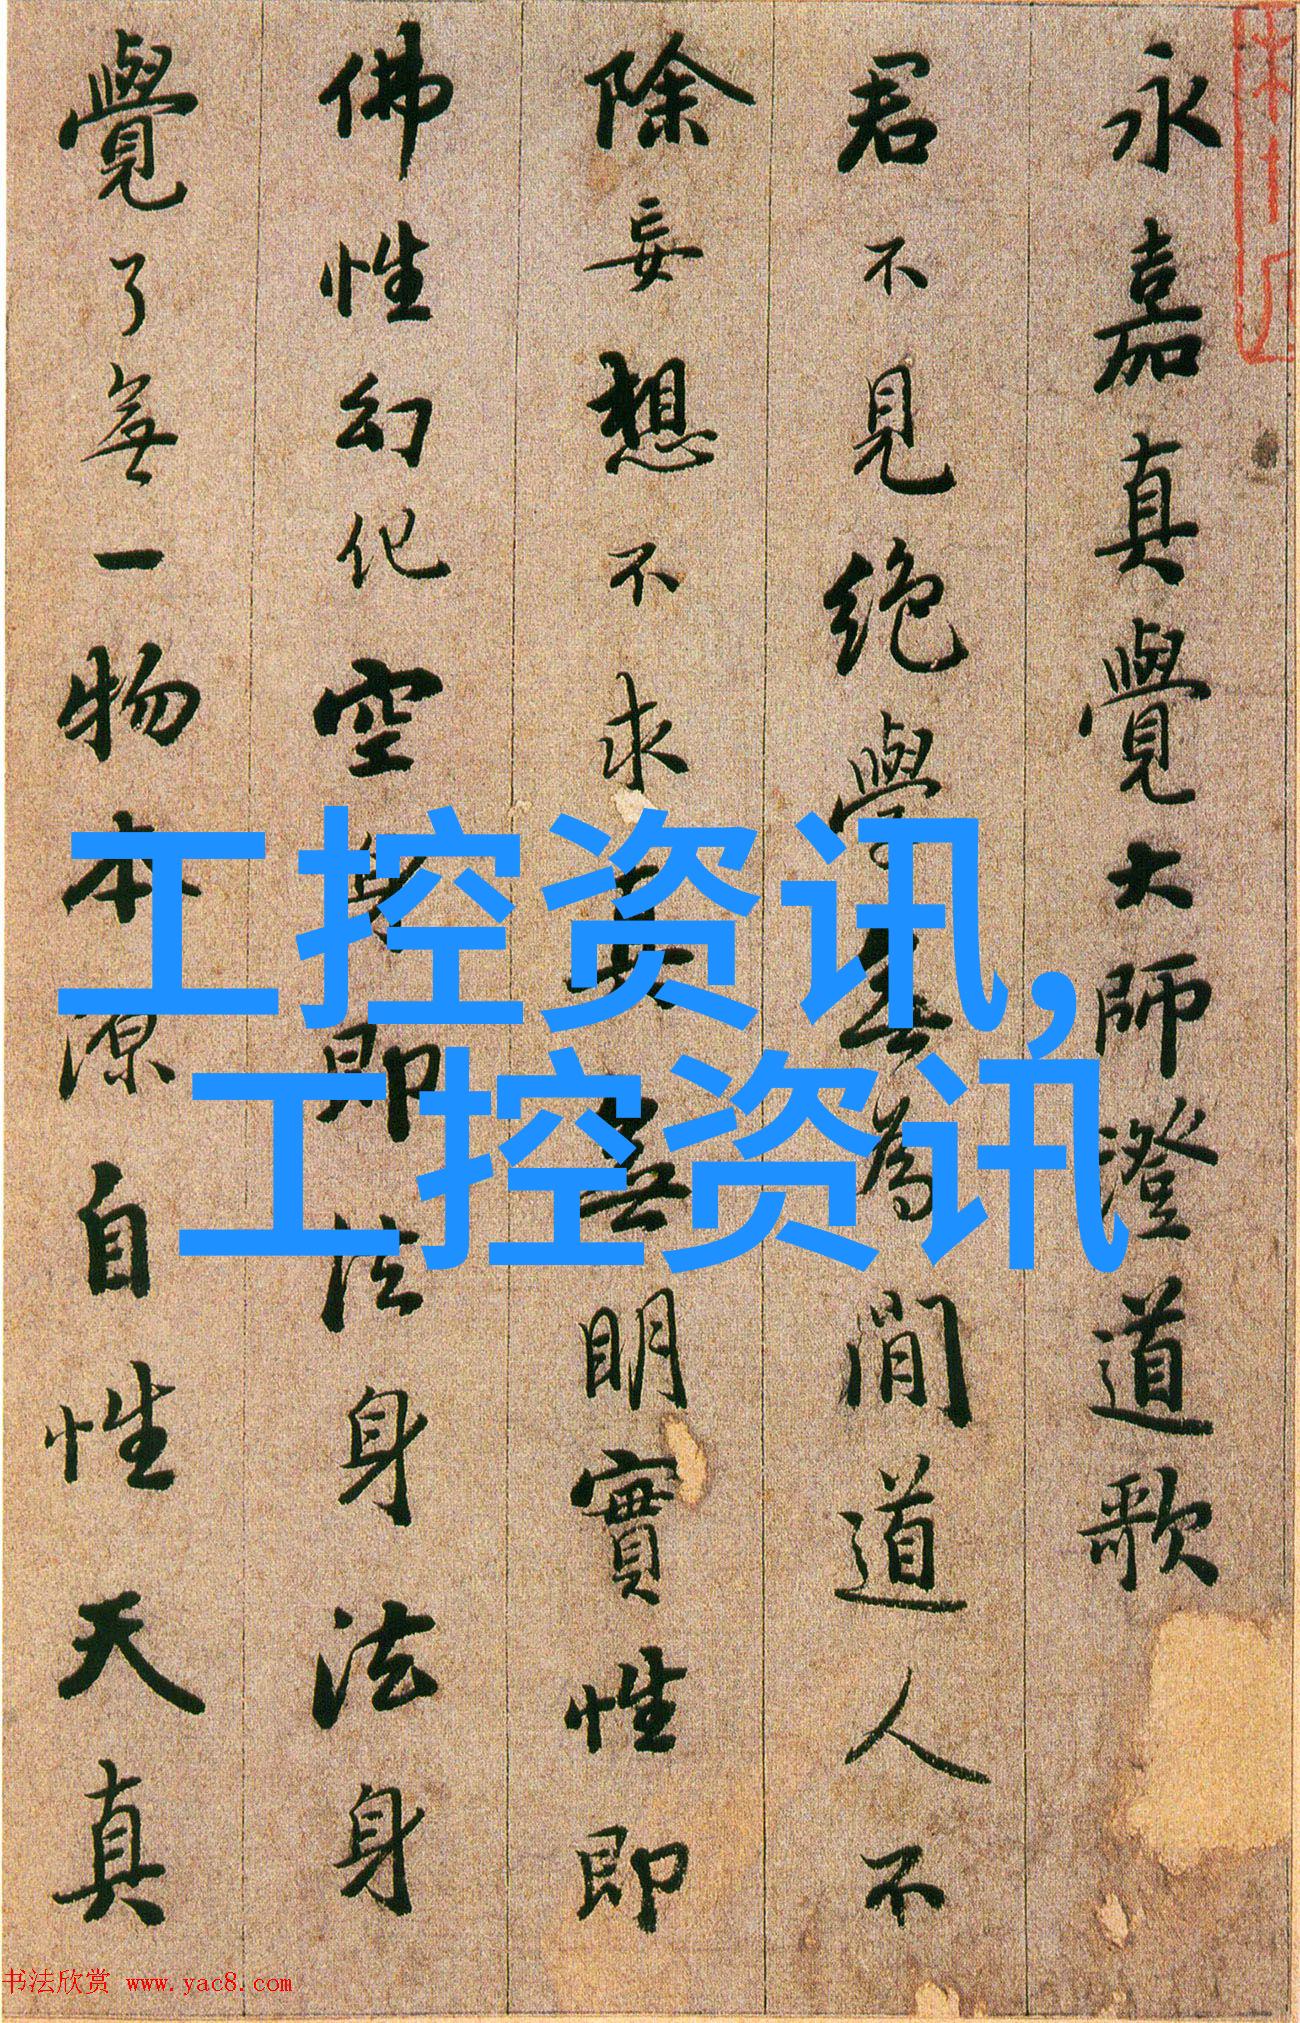 永嘉真覺大師澄道歌
君不見絶學無為閒道人不
除妄想不求真無明實性即
佛性幻化空身即法身法身
覺了無一物本源自性天真
工控资讯,
工控资讯
书法欣赏 www.yac8.com